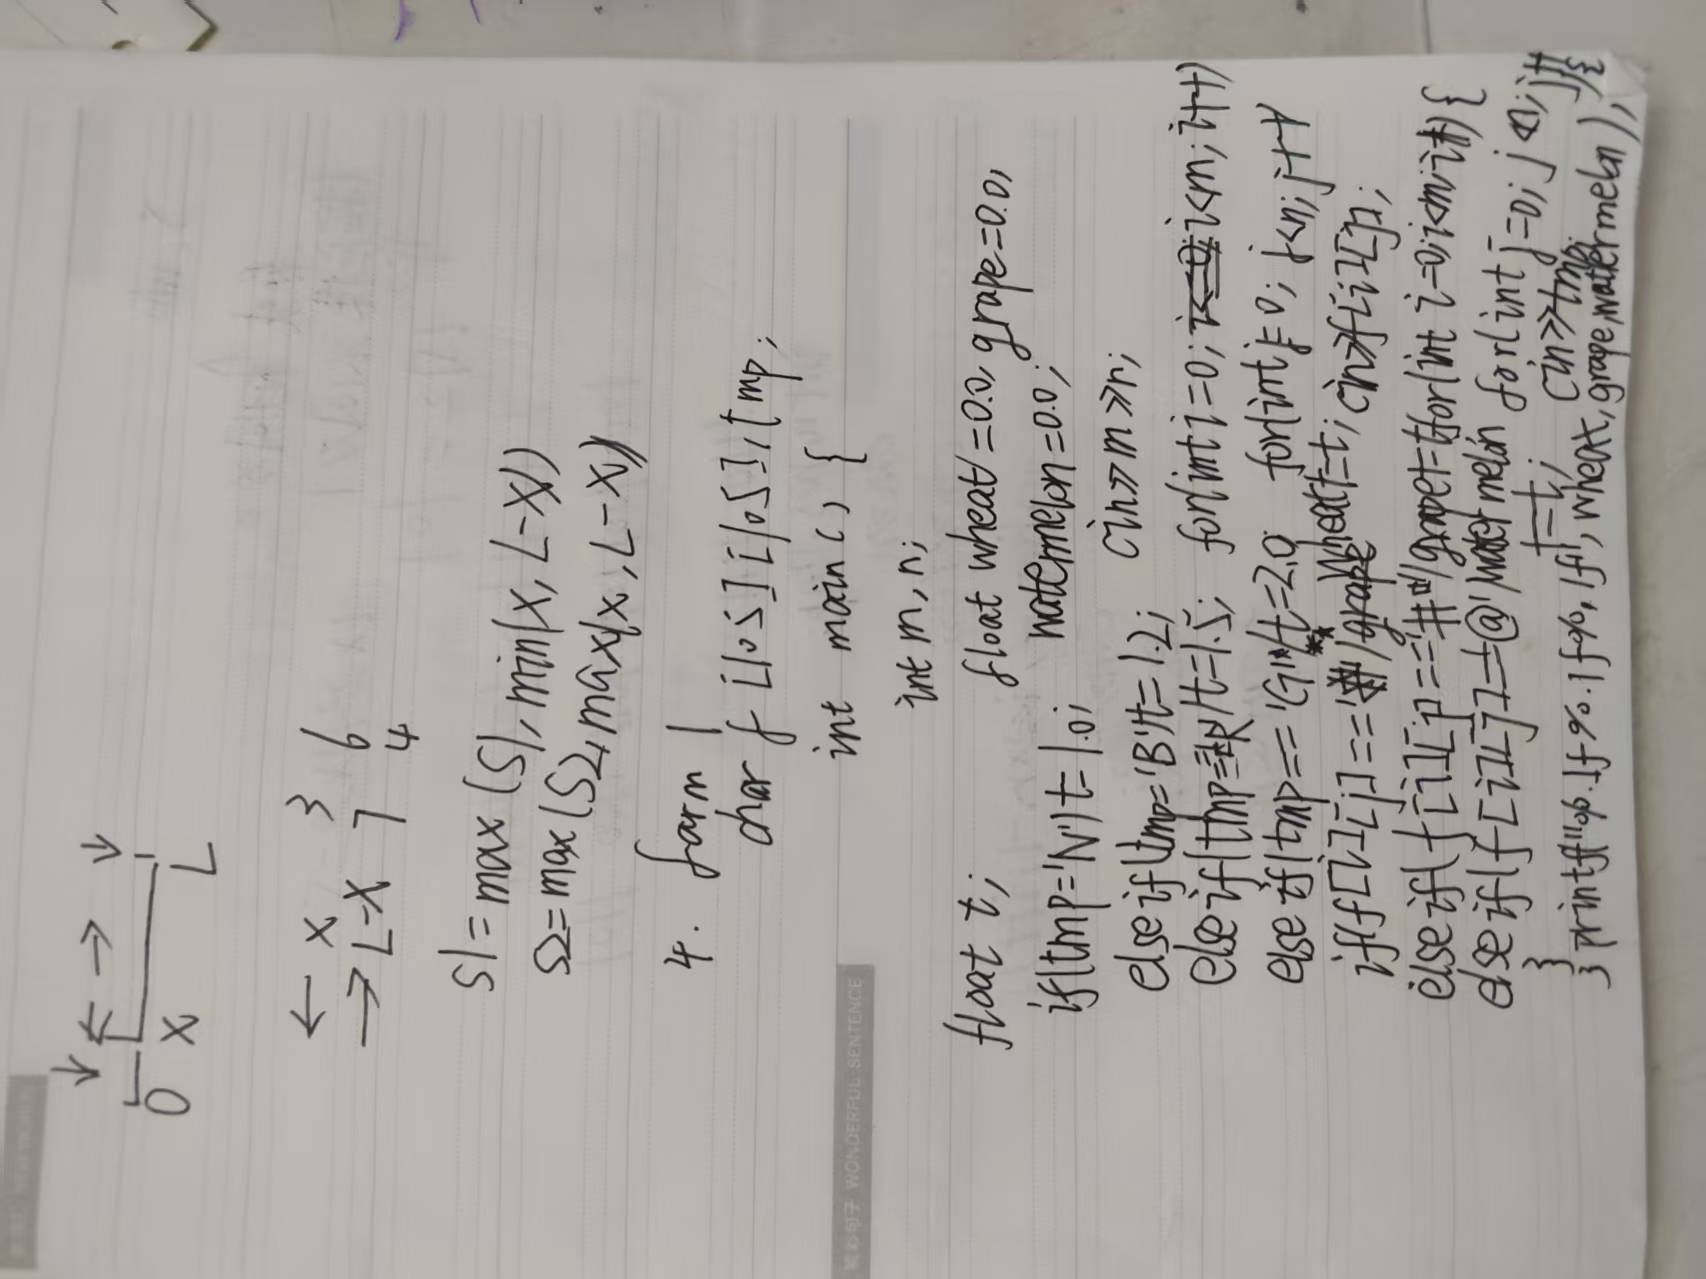 ↓ ← → ↓
0 X L
← X 3 6
→ L-X 7 4
S1=max(S1,min(X,L-X))
S2=max(S2,max(x,L-X))
4. farm 1
char f [105][105],tmp;
int main() {
int m,n;
float wheat=0.0,grape=0.0,
watermelon=0.0;
cin>>m>>n;
for(int i=0;i<m;i++)
for(int j=0;j<n;j++)
cin>>f[i][j];
for(int i=0;i<m;i++){
for(int j=0;j<n;j++){
cin>>tmp;
float t;
if(tmp='N')t=1.0;
else if(tmp='B')t=1.2;
else if(tmp= )t=1.5;
else if(tmp=='G')t=2.0
if(f[i][j]==' ')wheat+=t;
else if(f[i][j]=='#')grape+=t;
else if(f[i][j]=='@')watermelon
+=t;
}
}
printf("%.1f%.1f%.1f",wheat,grape,watermelon);
精彩句子 WONDERFUL SENTENCE